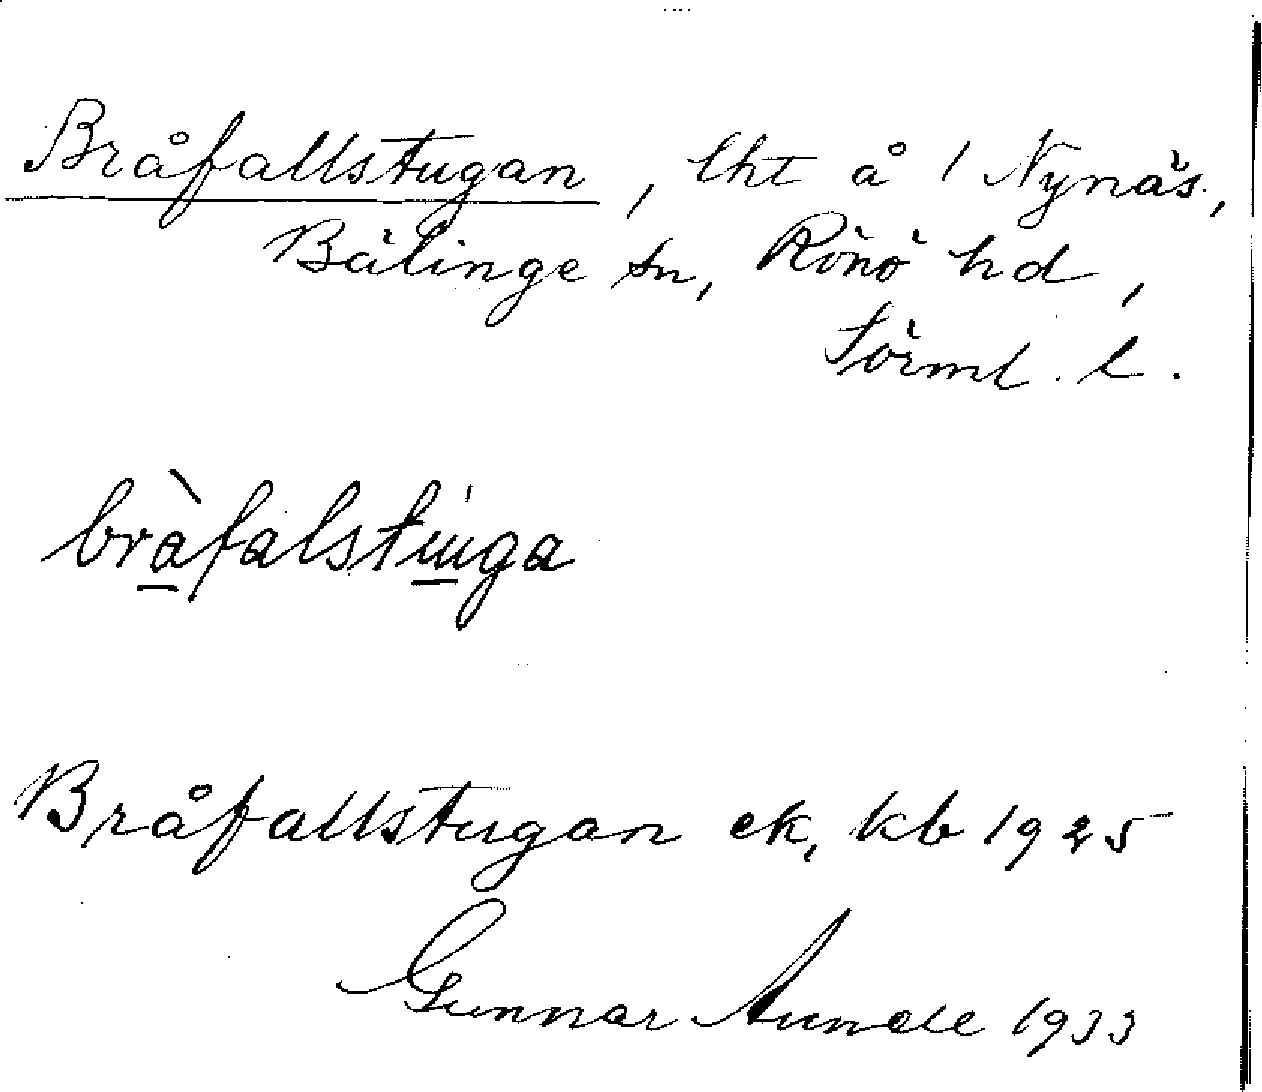 Bråfallstugan, lht å 1 Nynäs,
Bälinge sn, Rönö hd,
Sörml. l.
bràfalstu̇ga
Bråfallstugan ek. kb 1925
Gunnar 1933